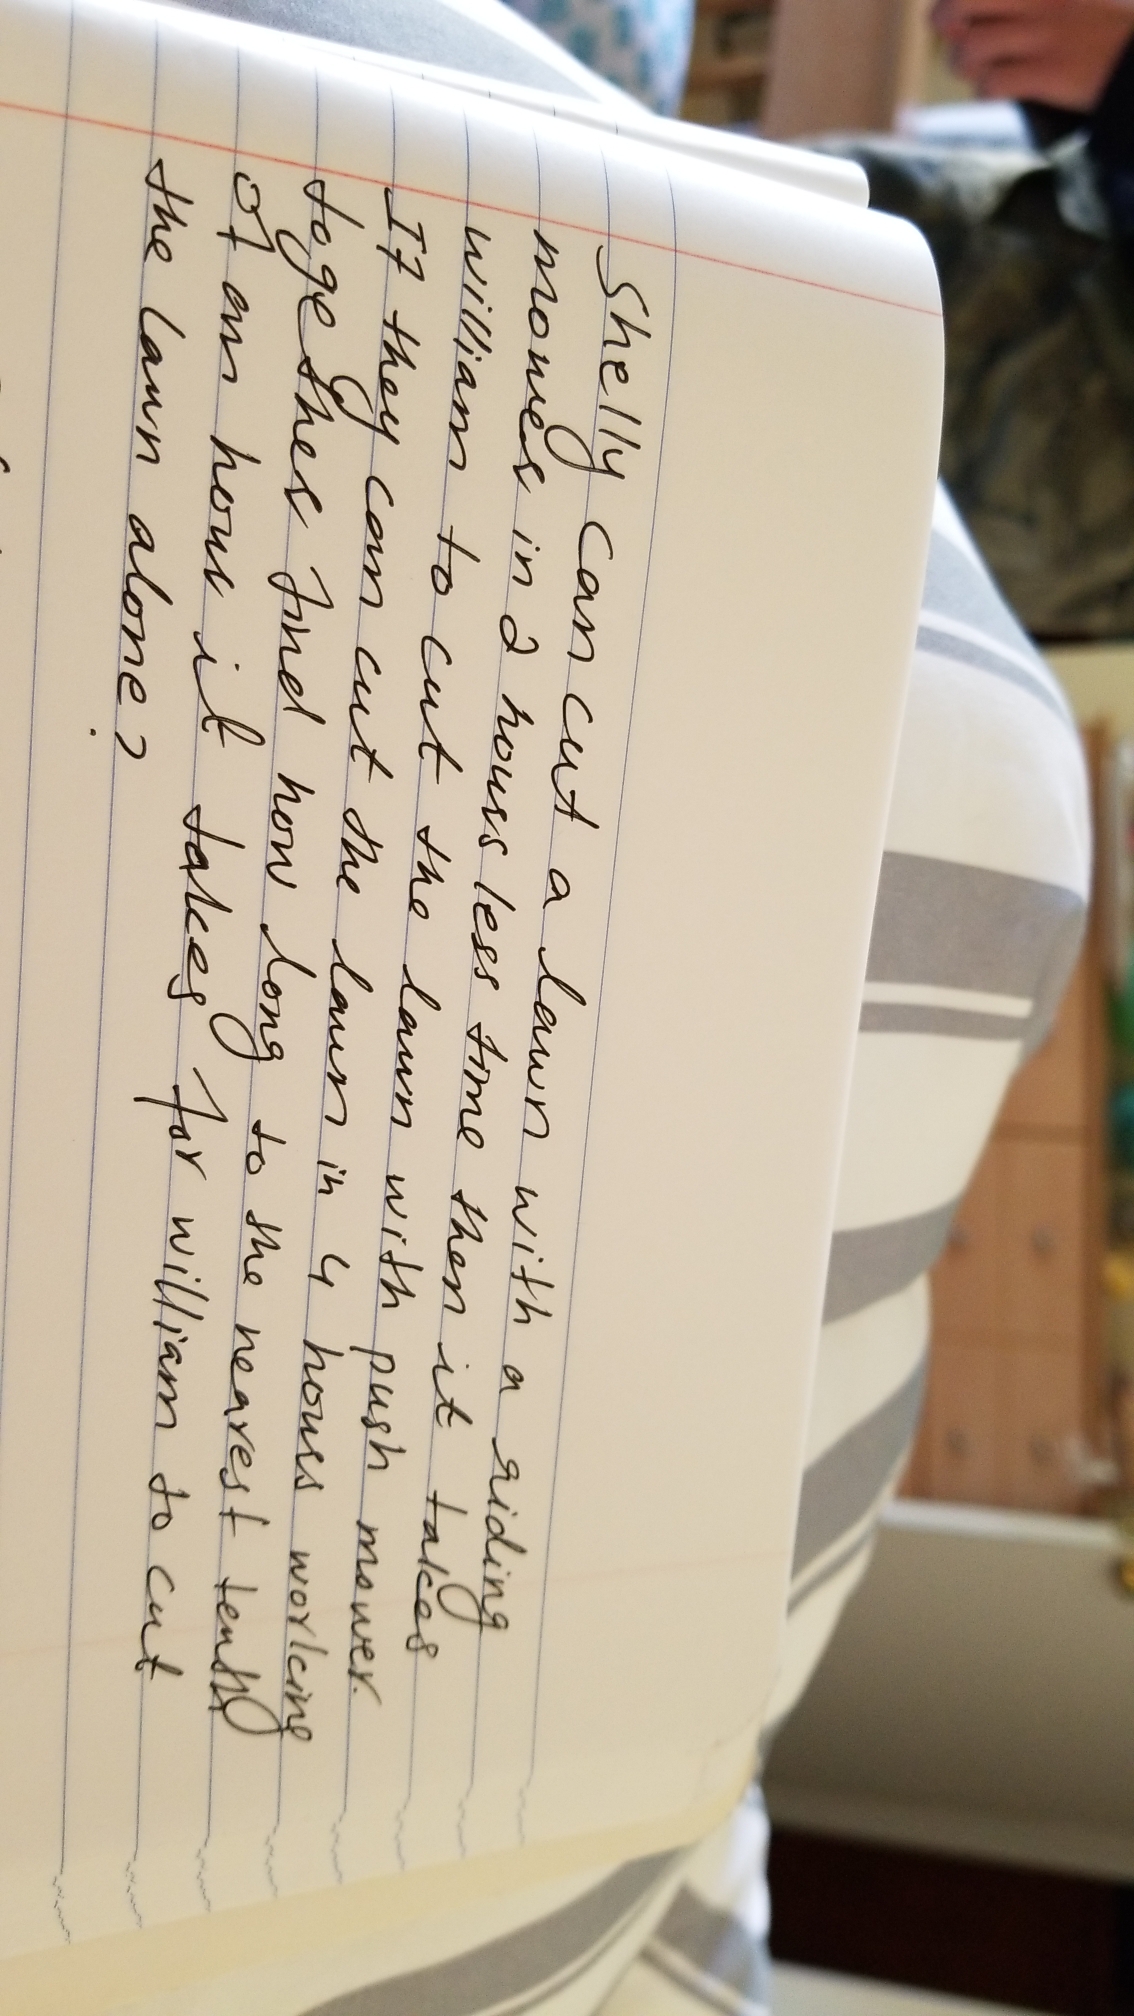 Shelly can cut a lawn with a riding
mower in 2 hours less time then it takes
william to cut the lawn with push mower.
If they can cut the lawn in 4 hours working
together find how long to the nearest tenth
of an hour it takes for william to cut
the lawn alone?